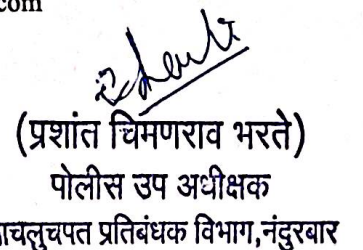 com
(प्रशांत चिमणराव भरते)
पोलीस उप अधीक्षक
ाचलुचपत प्रतिबंधक विभाग,नंदुरबार